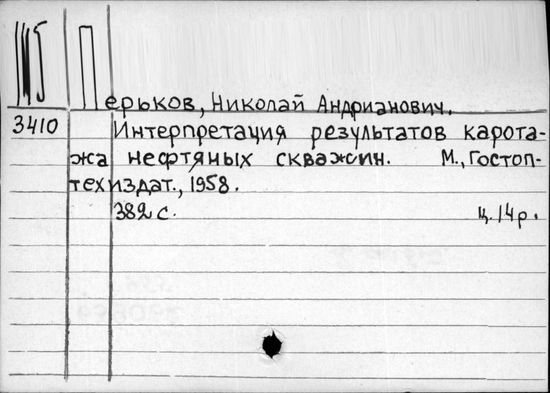 Перьков, Николай Андрианович.
3410 Интерпретация результатов карота-
жа нефтяных скважин. М., Гостоп-
техиздат., 1958.
382 с. ц. 14 р.